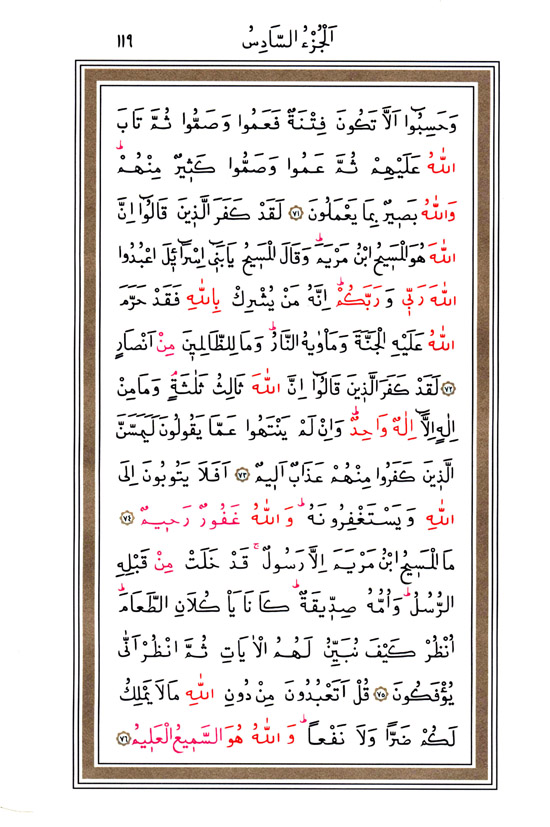 اَلْجُزْءُ السَّادِسُ ١١٩
وَحَسِبُٓوا اَلَّا تَكُونَ فِتْنَةٌ فَعَمُوا وَصَمُّوا ثُمَّ تَابَ
اللّٰهُ عَلَيْهِمْ ثُمَّ عَمُوا وَصَمُّوا كَثِيرٌ مِنْهُمْۜ
وَاللّٰهُ بَصِيرٌ بِمَا يَعْمَلُونَ ﴿٧١﴾ لَقَدْ كَفَرَ الَّذِينَ قَالُٓوا اِنَّ
اللّٰهَ هُوَ الْمَسِيحُ ابْنُ مَرْيَمَۜ وَقَالَ الْمَسِيحُ يَابَنِٓي اِسْرَٓائِلَ اعْبُدُوا
اللّٰهَ رَبِّي وَرَبَّكُمْۜ اِنَّهُ مَنْ يُشْرِكْ بِاللّٰهِ فَقَدْ حَرَّمَ
اللّٰهُ عَلَيْهِ الْجَنَّةَ وَمَاْوٰيهُ النَّارُۜ وَمَا لِلظَّالِمِينَ مِنْ اَنْصَارٍ
﴿٧٢﴾ لَقَدْ كَفَرَ الَّذِينَ قَالُٓوا اِنَّ اللّٰهَ ثَالِثُ ثَلٰثَةٍۘ وَمَا مِنْ
اِلٰهٍ اِلَّٓا اِلٰهٌ وَاحِدٌۜ وَاِنْ لَمْ يَنْتَهُوا عَمَّا يَقُولُونَ لَيَمَسَّنَّ
الَّذِينَ كَفَرُوا مِنْهُمْ عَذَابٌ اَلِيمٌ ﴿٧٣﴾ اَفَلَا يَتُوبُونَ اِلَى
اللّٰهِ وَيَسْتَغْفِرُونَهُۜ وَاللّٰهُ غَفُورٌ رَحِيمٌ ﴿٧٤﴾
مَا الْمَسِيحُ ابْنُ مَرْيَمَ اِلَّا رَسُولٌۚ قَدْ خَلَتْ مِنْ قَبْلِهِ
الرُّسُلُۜ وَاُمُّهُ صِدِّيقَةٌۜ كَانَا يَأْكُلَانِ الطَّعَامَۜ
اُنْظُرْ كَيْفَ نُبَيِّنُ لَهُمُ الْاٰيَاتِ ثُمَّ انْظُرْ اَنّٰى
يُؤْفَكُونَ ﴿٧٥﴾ قُلْ اَتَعْبُدُونَ مِنْ دُونِ اللّٰهِ مَا لَا يَمْلِكُ
لَكُمْ ضَرًّا وَلَا نَفْعاًۜ وَاللّٰهُ هُوَ السَّمِيعُ الْعَلِيمُ ﴿٧٦﴾